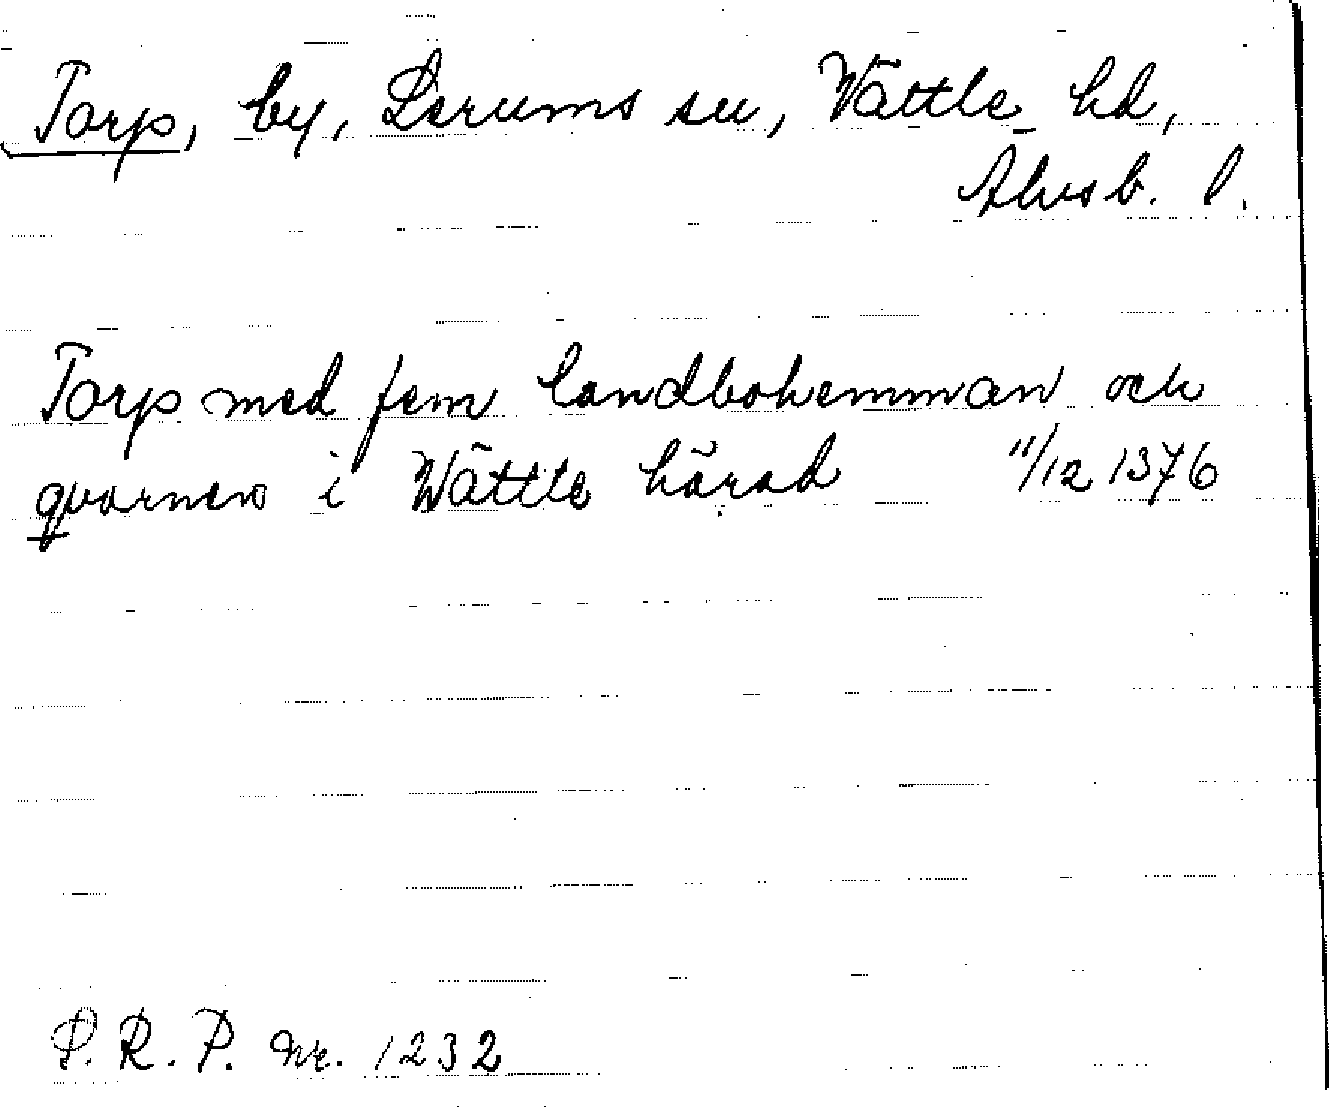 Torp, by, Lerums sn, Vättle hd,
Älvsb. l.
Torp med fem landbohemman och
qvarnen i Wättle härad 11/12 1376
P. R. P. Nr. 1232